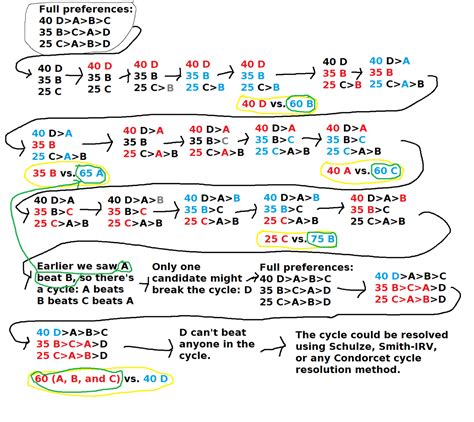 Full preferences:
40 D>A>B>C
35 B>C>A>D
25 C>A>B>D
40 D
35 B
25 C
40 D
35 B
25 C
40 D
35 B
25 C>B
40 D
35 B
25 C>B
40 D
35 B
25 C>B
40 D vs. 60 B
40 D
35 B
25 C>B
40 D>A
35 B
25 C>A>B
40 D>A
35 B
25 C>A>B
35 B vs. 65 A
40 D>A
35 B
25 C>A>B
40 D>A
35 B>C
25 C>A>B
40 D>A
35 B>C
25 C>A>B
40 D>A
35 B>C
25 C>A>B
40 A vs. 60 C
40 D>A
35 B>C
25 C>A>B
40 D>A
35 B>C
25 C>A>B
40 D>A>B
35 B>C
25 C>A>B
40 D>A>B
35 B>C
25 C>A>B
25 C vs. 75 B
40 D>A>B
35 B>C
25 C>A>B
Earlier we saw A
beat B, so there's
a cycle: A beats
B beats C beats A
Only one
candidate might
break the cycle: D
Full preferences:
40 D>A>B>C
35 B>C>A>D
25 C>A>B>D
40 D>A>B>C
35 B>C>A>D
25 C>A>B>D
40 D>A>B>C
35 B>C>A>D
25 C>A>B>D
60 (A, B, and C) vs. 40 D
D can't beat
anyone in the
cycle.
The cycle could be resolved
using Schulze, Smith-IRV,
or any Condorcet cycle
resolution method.